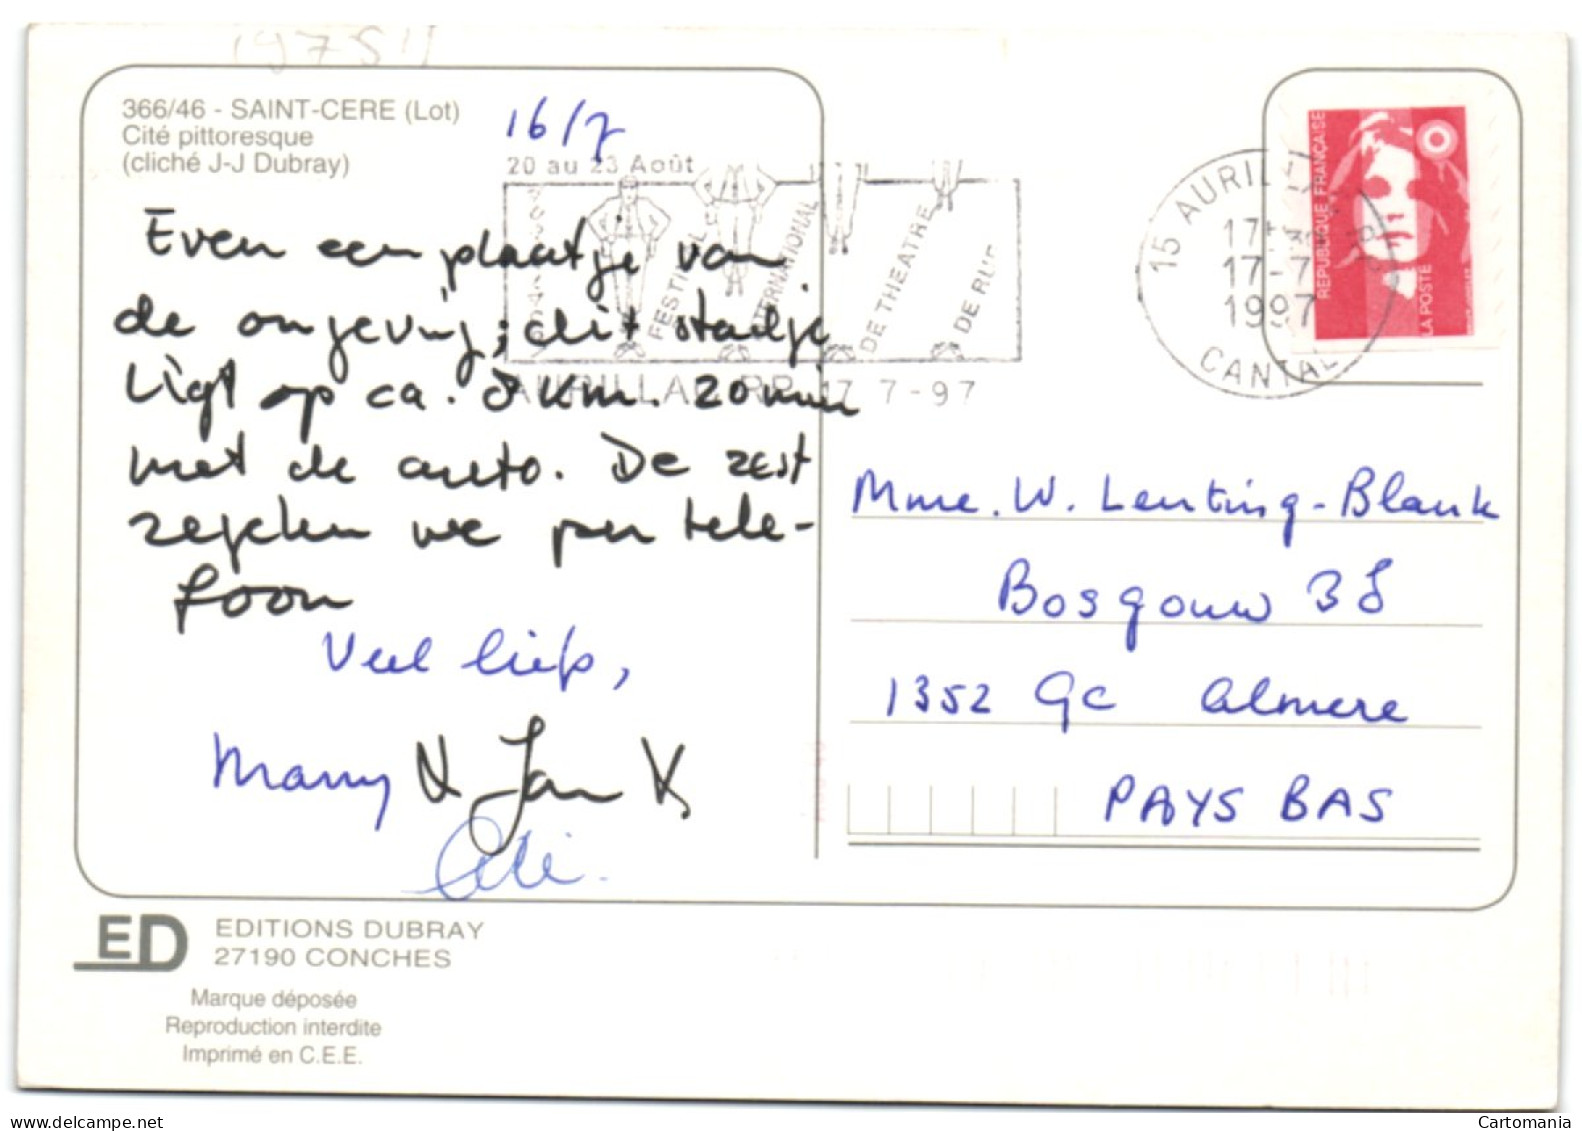 366/46 - SAINT-CERE (Lot)
Cité pittoresque
(cliché J-J Dubray)
16/7
20 au 23 Août
FESTIVAL
INTERNATIONAL
DE THEATRE
DE RUE
AURILLAC RP 17 7-97
15 AURILLAC
17-7
1997
CANTAL
REPUBLIQUE FRANÇAISE
LA POSTE
Even een plaatje van
de omgeving; dit stadje
ligt op ca. 8 km. 20 min
met de auto. De rest
regelen we per tele-
foon
Veel liefs,
Manny N Jan K
Mme. W. Lenting-Blank
Bosgouw 38
1352 GC Almere
PAYS BAS
ED
EDITIONS DUBRAY
27190 CONCHES
Marque déposée
Reproduction interdite
Imprimé en C.E.E.
Cartomania